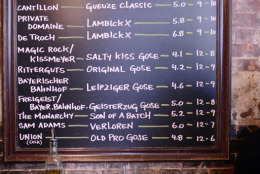 CANTILLON — GUEUZE CLASSIC — 5.0 - 9 - 10
PRIVATE
DOMAINE — LAMBICKX — 5.8 - 9 - 10
DE TROCH — LAMBICKX — 6.8 -
MAGIC ROCK/
KISSMEYER — SALTY KISS GOSE — 4.1 - 12 - 8
RITTERGUTS — ORIGINAL GOSE — 4.2 - 12 -
BAYERISCHER
BAHNHOF — LEIPZIGER GOSE — 4.6 - 12 -
FREIGEIST/
BAYER.BAHNHOF - GEISTERZUG GOSE — 5.0 - 12 - 8
THE MONARCHY — SON OF A BATCH — 5.2 - 12 - 9
SAM ADAMS — VERLOREN — 6.0 - 12 -
UNION — OLD PRO GOSE — 4.8 - 12 - 6